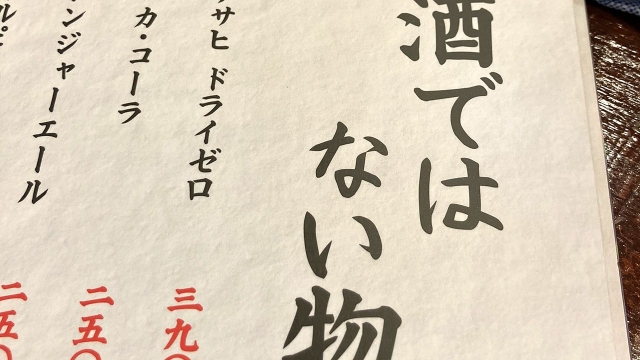 酒では
ない物
サヒ ドライゼロ
三九〇
カ・コーラ
二五〇
ンジャーエール
二五〇